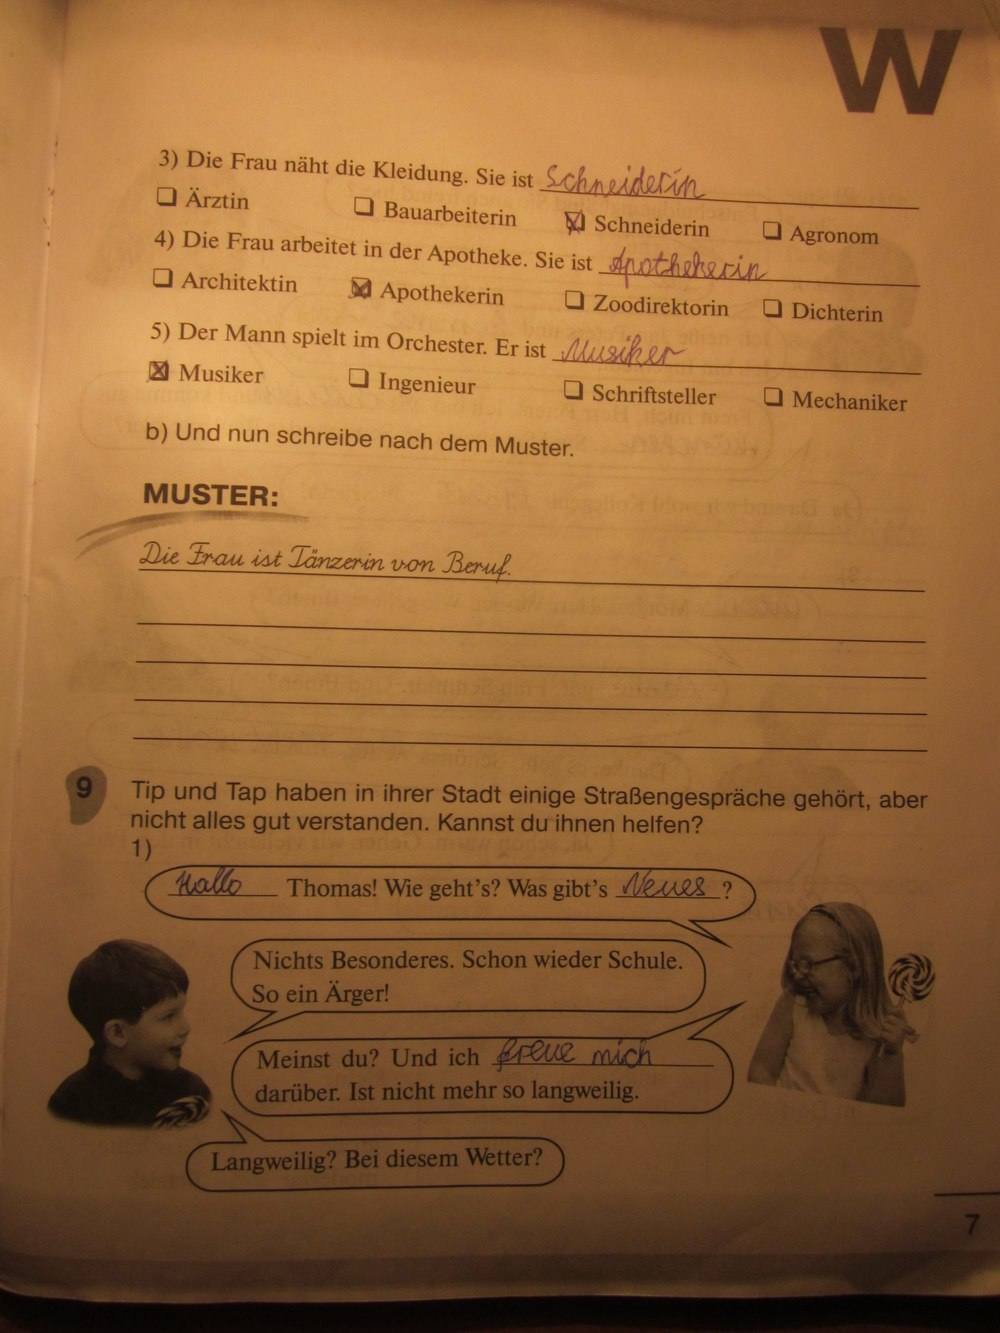 W
3) Die Frau näht die Kleidung. Sie ist Schneiderin
❏ Ärztin ❏ Bauarbeiterin ☒ Schneiderin ❏ Agronom
4) Die Frau arbeitet in der Apotheke. Sie ist Apothekerin
❏ Architektin ☒ Apothekerin ❏ Zoodirektorin ❏ Dichterin
5) Der Mann spielt im Orchester. Er ist Musiker
☒ Musiker ❏ Ingenieur ❏ Schriftsteller ❏ Mechaniker
b) Und nun schreibe nach dem Muster.
MUSTER:
Die Frau ist Tänzerin von Beruf.
9 Tip und Tap haben in ihrer Stadt einige Straßengespräche gehört, aber
nicht alles gut verstanden. Kannst du ihnen helfen?
1)
Hallo Thomas! Wie geht's? Was gibt's Neues ?
Nichts Besonderes. Schon wieder Schule.
So ein Ärger!
Meinst du? Und ich freue mich
darüber. Ist nicht mehr so langweilig.
Langweilig? Bei diesem Wetter?
7